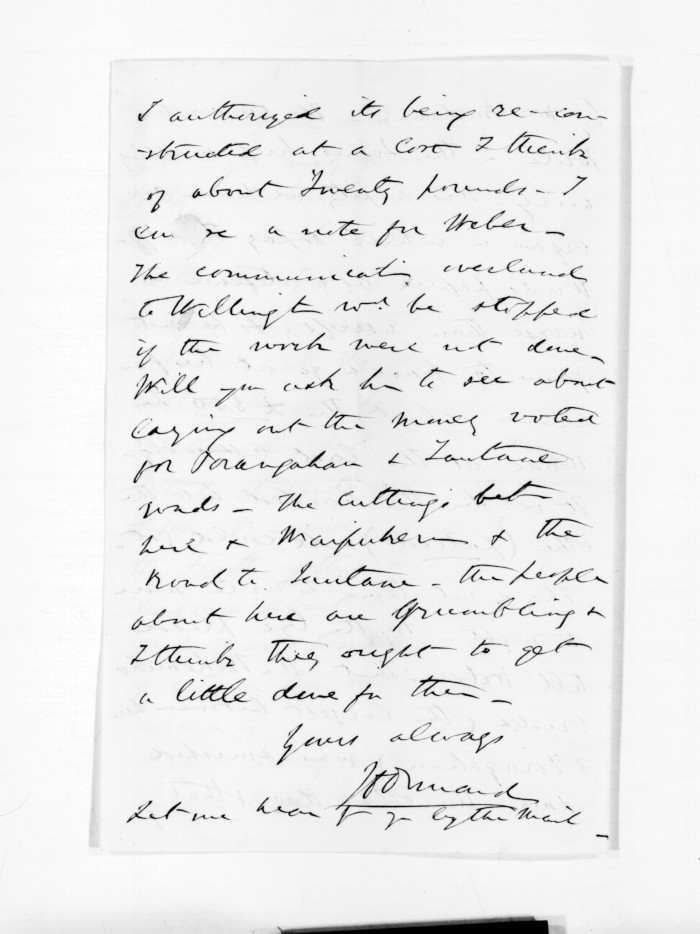 I authorized its being re-con-
-structed at a Cost I think
of about Twenty pounds - I
a note for Weber -
The communicati overland
to Wellingt wd. be stopped
if the work were not done -
Will you ask him to see about
laying out the money voted
for Porangahau & Tautane
roads - The Cuttings bet
here & Waipukurau & the
road to Tautane - the people
about here are grumbling &
I think they ought to get
a little done for them -
Yours always
JD Ormond
Let me hear fr yo by the Mail -